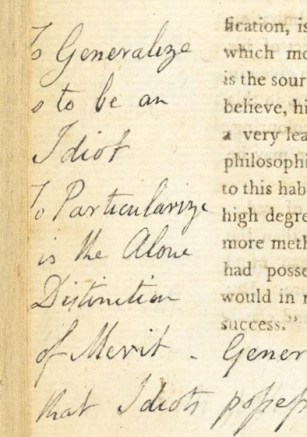 To Generalize
is to be an
Idiot
To Particularize
is the Alone
Distinction
of Merit - Gener
that Idiots possess
fication, is
which mo
is the sour
believe, hi
a very lea
philosophi
to this hab
high degre
more meth
had posse
would in
success."